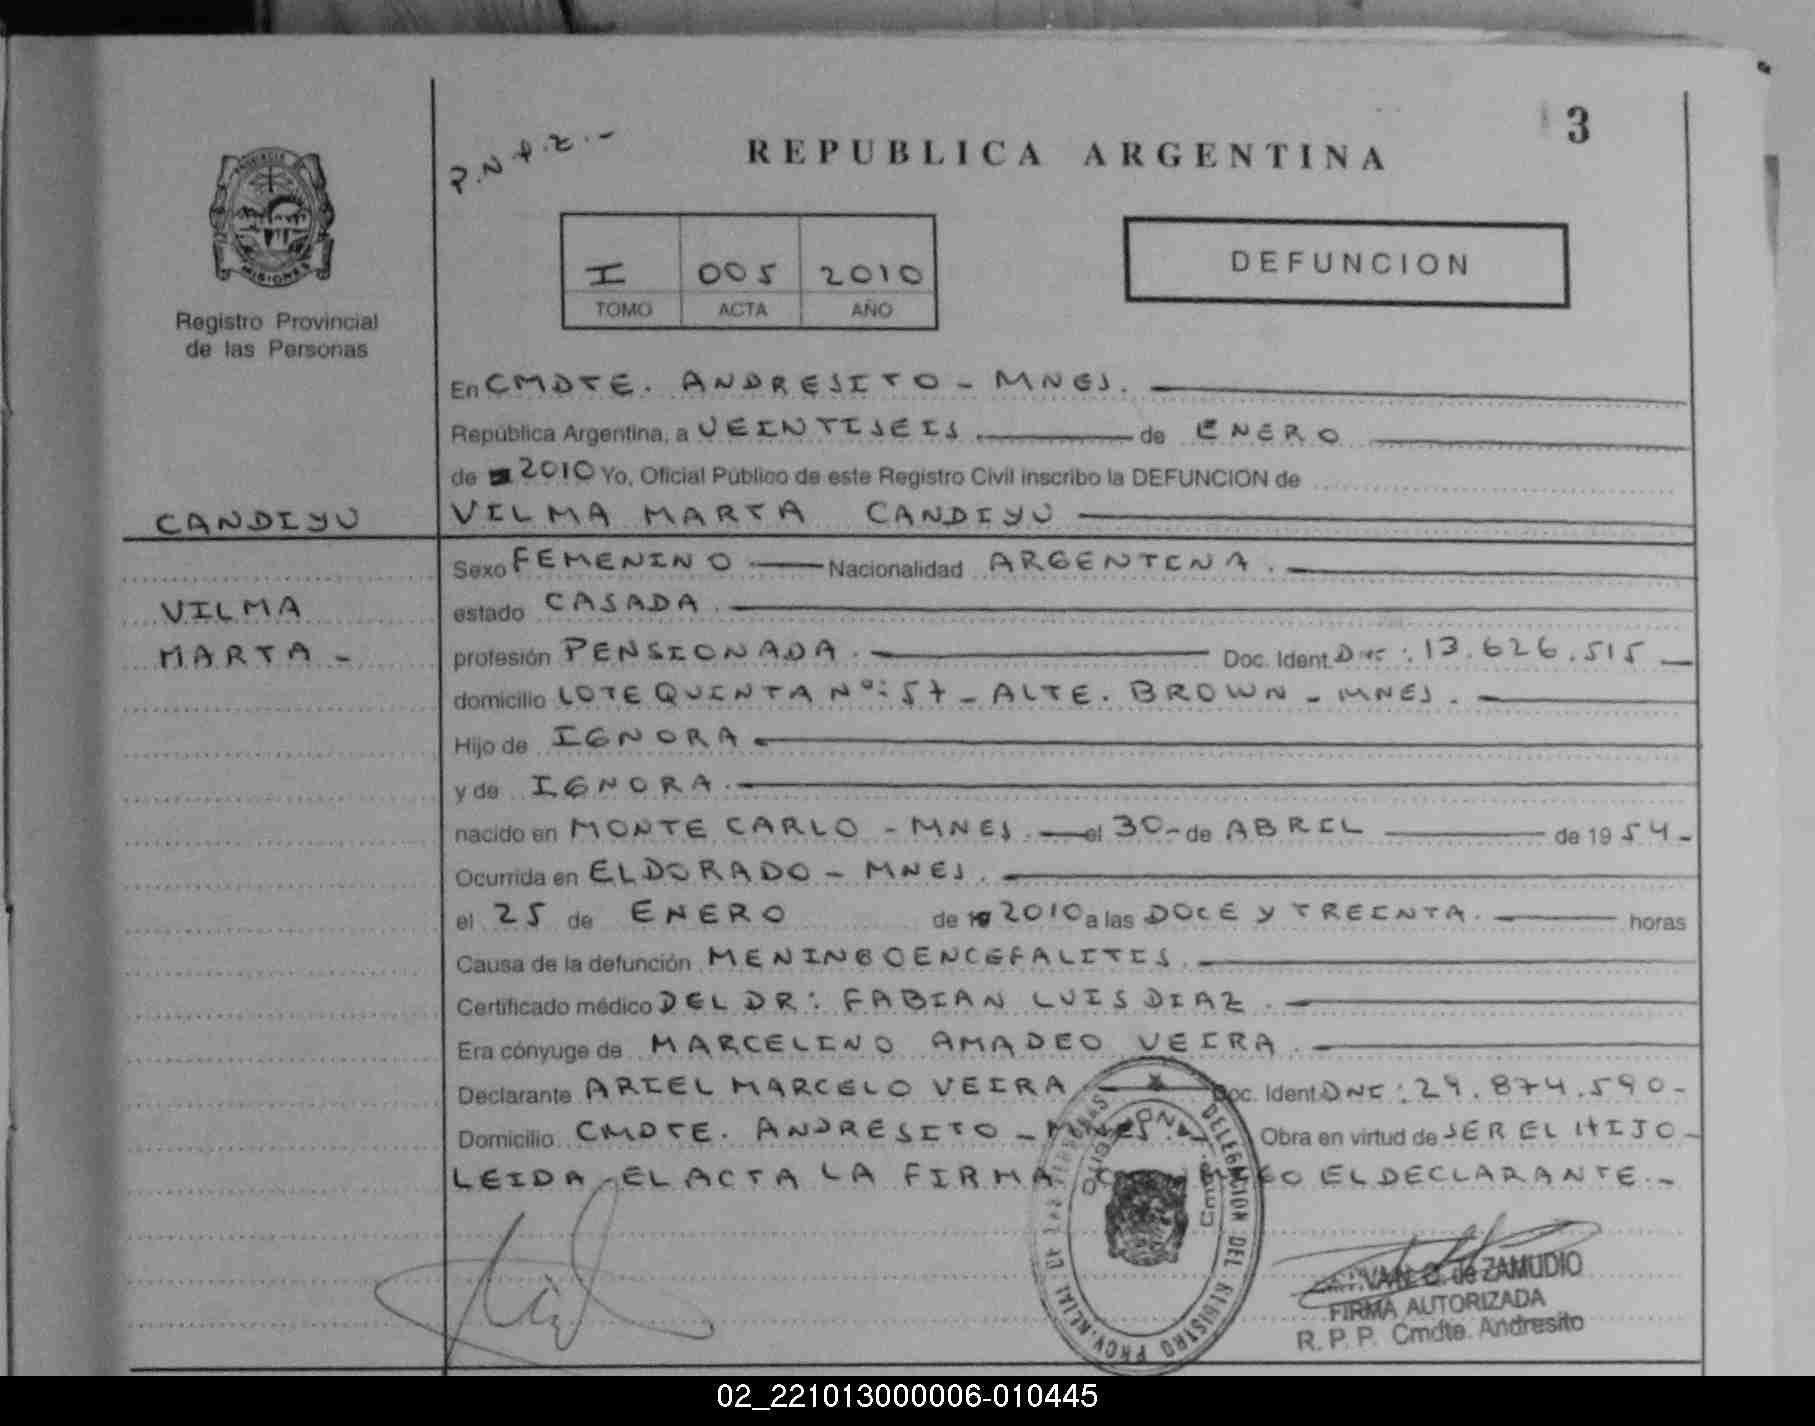 3
REPUBLICA ARGENTINA
MISIONES
I 005 2010
TOMO ACTA AÑO
DEFUNCION
Registro Provincial
de las Personas
En CMDTE. ANDRESITO - MNES.
República Argentina, a VEINTISEIS de ENERO
de 2010 Yo, Oficial Público de este Registro Civil inscribo la DEFUNCION de
CANDIYU
VILMA MARTA CANDIYU
Sexo FEMENINO Nacionalidad ARGENTINA.
VILMA
estado CASADA.
MARTA -
profesión PENSIONADA. Doc. Ident. DNI: 13.626.515
domicilio LOTE QUINTA Nº: 57 - ALTE. BROWN - MNES.
Hijo de IGNORA
y de IGNORA.
nacido en MONTE CARLO - MNES. el 30 de ABRIL de 1954-
Ocurrida en ELDORADO - MNES.
el 25 de ENERO de 2010 a las DOCE Y TREINTA. horas
Causa de la defunción MENINGOENCEFALITIS.
Certificado médico DEL DR: FABIAN LUIS DIAZ.
Era cónyuge de MARCELINO AMADEO VEIRA.
Declarante ARIEL MARCELO VEIRA Doc. Ident DNI: 29.874.590-
Domicilio CMDTE. ANDRESITO - MNES. Obra en virtud de SER EL HIJO-
LEIDA EL ACTA LA FIRMA EL DECLARANTE.-
DELEGACION DEL REGISTRO PROVINCIAL DE LAS PERSONAS
de ZAMUDIO
FIRMA AUTORIZADA
R. P. P. Cmdte. Andresito
02_221013000006-010445